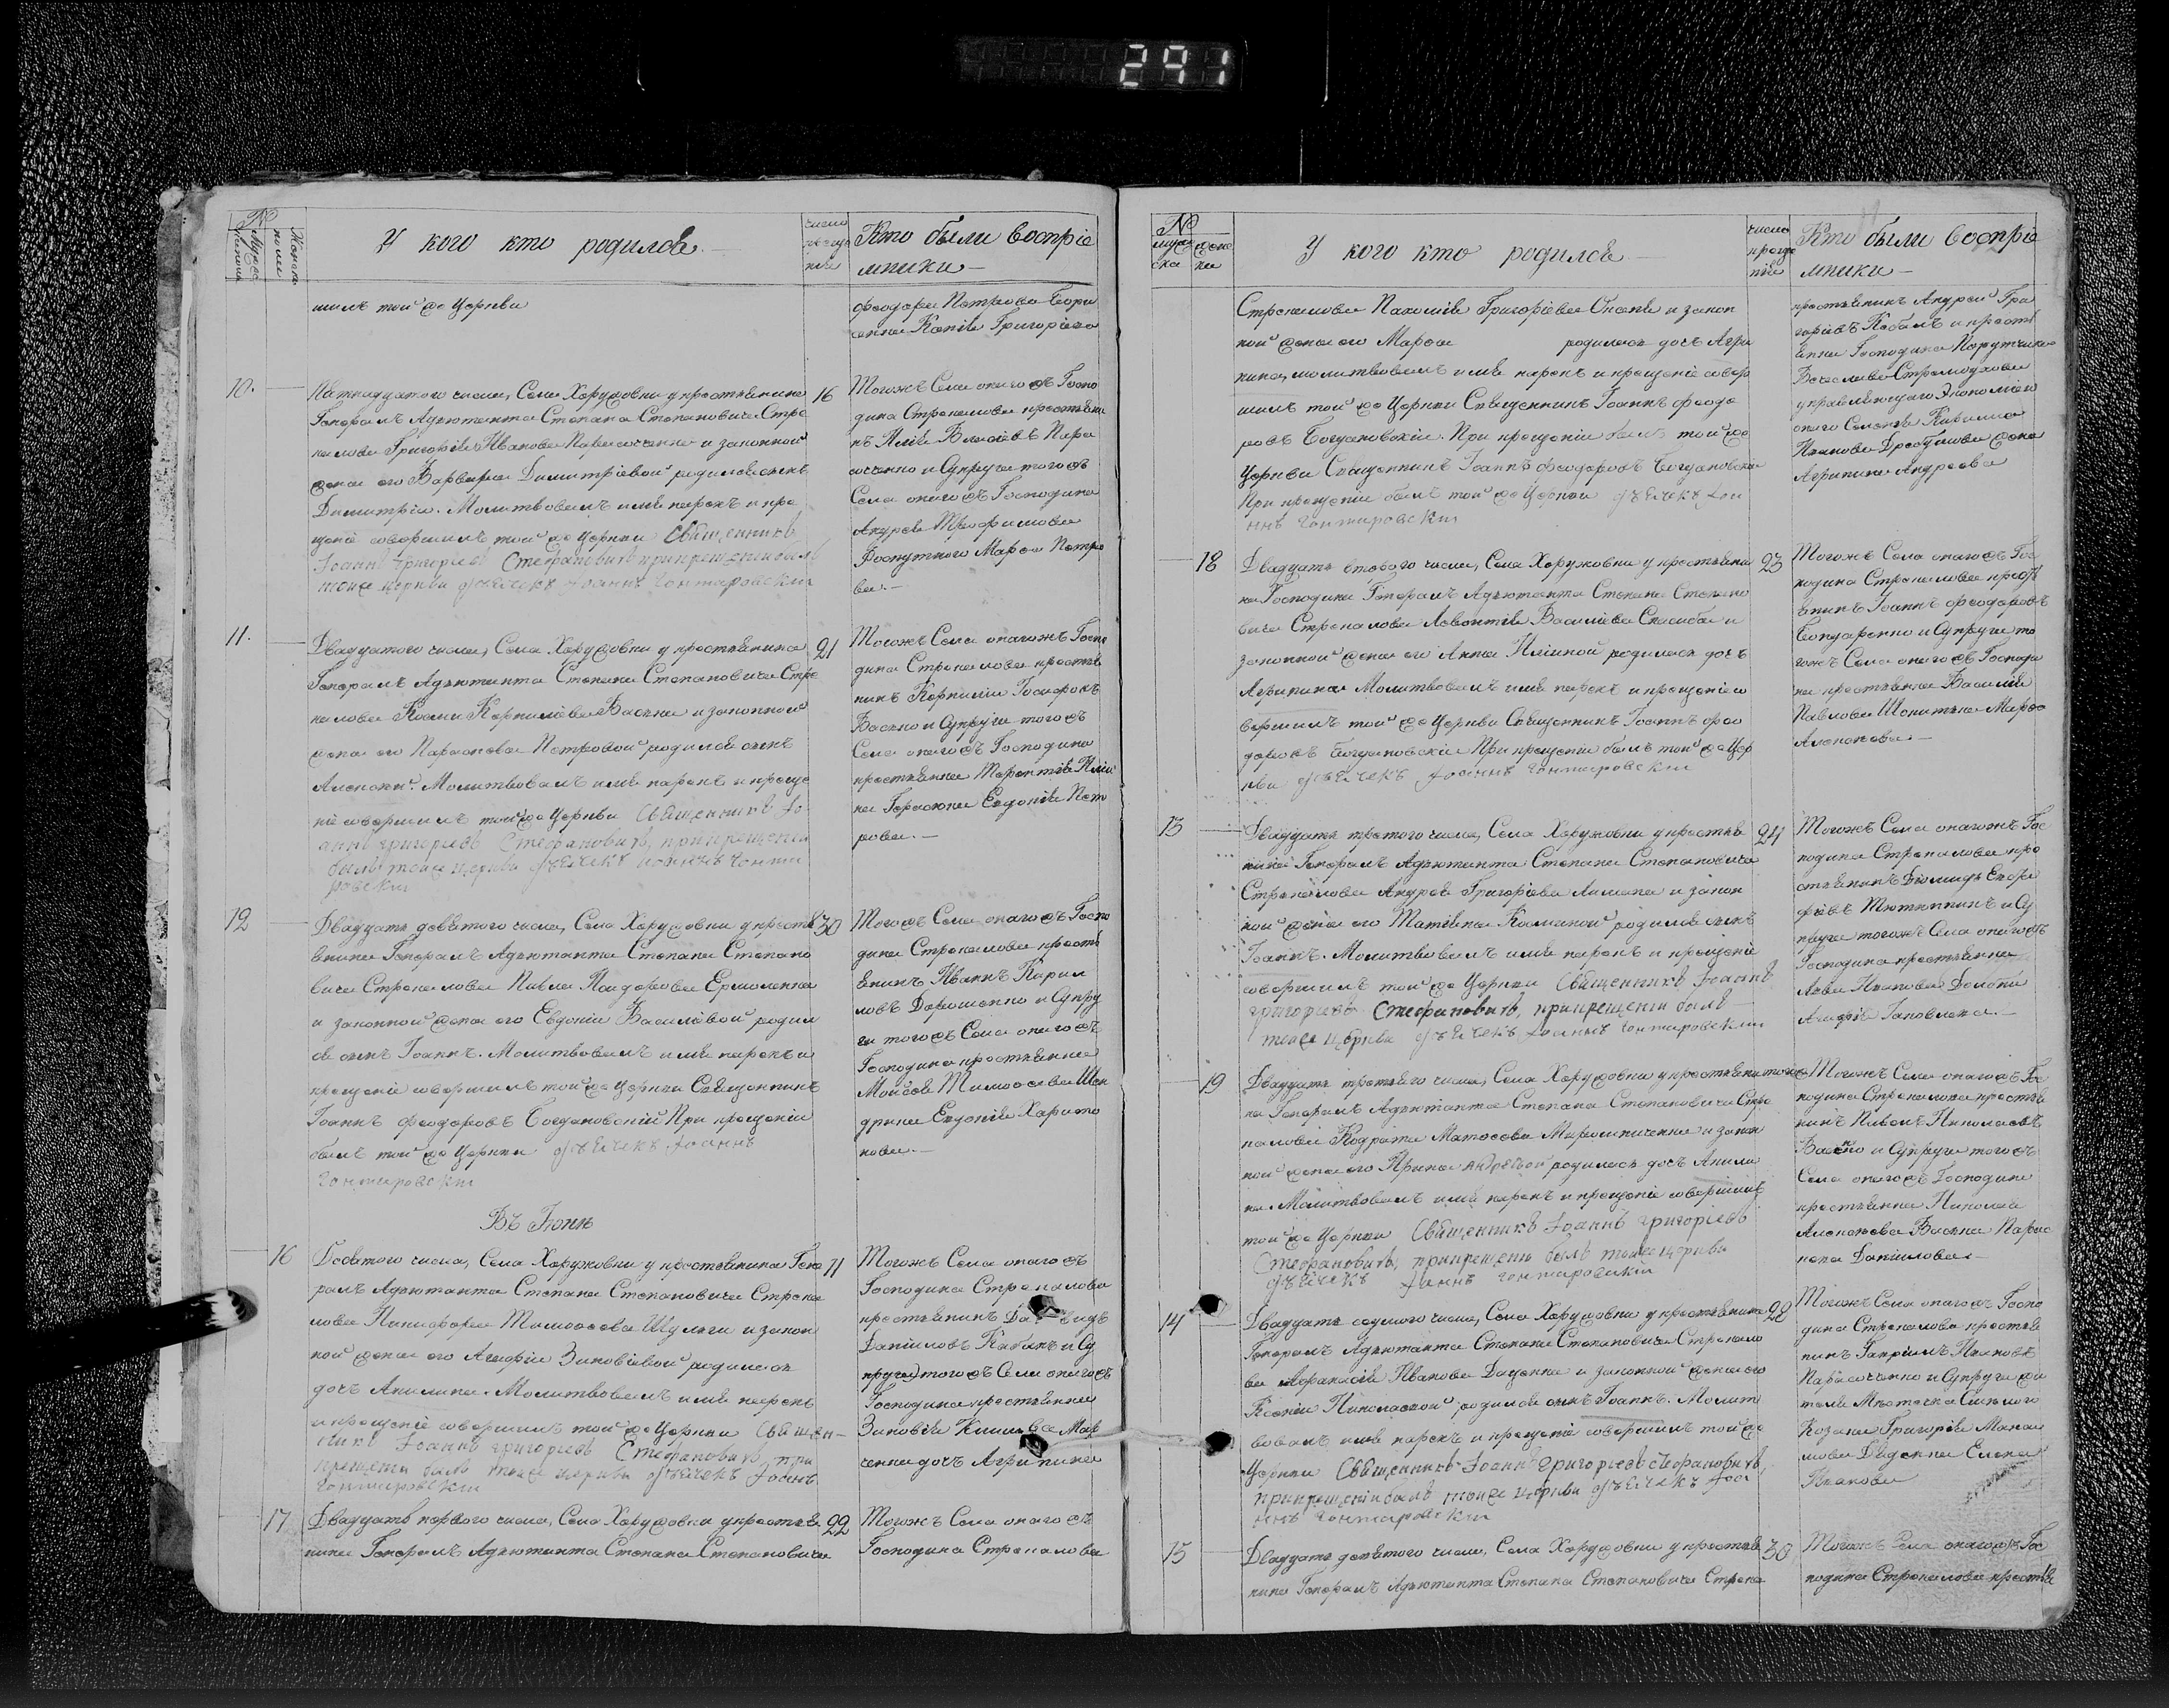 291
№
Мужеска
полу
Женска
У кого кто родился
число
креще
нія
Кто были воспріе
мники
шилъ той же Церкви
Григоріева
10.
Пятнадцатого числа, Села Хоружовки у крестьянина
16
Генералъ Адъютанта Степана Степановича Стре
калова Григорія Иванова и законной
жены его Варвары Димитріевой родился сынъ
Димитрій. Молитвовалъ имя нарекъ и кре
щеніе совершилъ той же Церкви Священникъ
Іоаннъ Григоріевъ Стефановичъ при крещеніи былъ
тоже церкви дъячекъ Іоаннъ Гонтаровскій
Тогожъ Села онагожъ Госпо
дина Стрекалова крестьяни
нъ Илія Власіевъ Пара
сочченко и Супруга тогожъ
Села онагожъ Господина
Андрея Трофимова
Марфа Петро
ва.
11.
Двадцатого числа, Села Хоружовки у крестьянина
21
Генералъ Адъютанта Степана Степановича Стре
калова Космы Корнилієва Васька и законной
жены его Параскевы Петровой родился сынъ
Алексій. Молитвовалъ имя нарекъ и креще
ніе совершилъ той же Церкви Священникъ Іо
аннъ Григоріевъ Стефановичъ, при крещеніи
былъ тоже церкви дъячекъ Іоаннъ Гонта
ровскій
Тогожъ Села онагожъ Госпо
дина Стрекалова крестья
нинъ Корнилій
Васько и Супруга тогожъ
Села онагожъ Господина
крестьянина Терентія Иліи
на Евдокія Пет
рова.
12
Двадцать девятого числа, Села Хоружовки у кресть
30
янина Генералъ Адъютанта Степана Степано
вича Стрекалова Павла Ермоленка
и законной жены его Евдокіи Василіевой родил
ся сынъ Іоаннъ. Молитвовалъ имя нарекъ и
крещеніе совершилъ той же Церкви Священникъ
Іоаннъ Феодоровъ Богдановскій При крещеніи
былъ той же Церкви дъячекъ Іоаннъ
Гонтаровскій
Тогожъ Села онагожъ Госпо
дина Стрекалова кресть
янинъ Иванъ Кирил
ловъ Дорошенко и Супру
га тогожъ Села онагожъ
Господина крестьянина
Моисея Тимофеева
Евдокія Харито
нова.
Въ Іюнѣ
16
Девятого числа, Села Хоружовки у крестьянина Гене
11
ралъ Адъютанта Степана Степановича Стрека
лова Никифора Тимофеева Шульги и закон
ной жены его Агафіи Зиновіевой родилась
дочь Акилина. Молитвовалъ имя нарекъ
и крещеніе совершилъ той же Церкви Священ-
никъ Іоаннъ Григоріевъ Стефановичъ, при
крещеніи былъ тоже церкви дъячекъ Іоаннъ
Гонтаровскій
Тогожъ Села онагожъ
Господина Стрекалова
крестьянинъ Давидъ
Даніиловъ Кабанъ и Су
пруга тогожъ Села онагожъ
Господина крестьянина
Зиновія
ченка дочь Агрипина
17
Двадцать первого числа, Села Хоружовки у крестья
22
нина Генералъ Адъютанта Степана Степановича
Тогожъ Села онагожъ
Господина Стрекалова
№
муже
ска
женс
ка
У кого кто родился
число
креще
нія
Кто были воспріе
мники
Стрекалова Григоріева и закон
ной жены его Марфы родилась дочь Агри
пина, молитвовалъ имя нарекъ и крещеніе совер
шилъ той же Церкви Священникъ Іоаннъ Феодо
ровъ Богдановскій. При крещеніи былъ той же
Церкви Священникъ Іоаннъ Феодоровъ Богдановскій
При крещеніи былъ той же Церкви дъячекъ Іоа
ннъ Гонтаровскій
крестьянинъ Андрей Гри
горіевъ Кабанъ и кресть
янина Господина Порутчика
управляющаго Экономіею
онаго Села Кирилла
Иванова жена
Агрипина Андреева
18
Двадцать второго числа, Села Хоружовки у крестьяни
23
на Господина Генералъ Адъютанта Степана Степано
вича Стрекалова Леонтія Василіева и
законной жены его Анны Иліиной родилась дочь
Агрипина Молитвовалъ имя нарекъ и крещеніе со
вершилъ той же Церкви Священникъ Іоаннъ Фео
доровъ Богдановскій При крещеніи былъ той же Цер
кви дъячекъ Іоаннъ Гонтаровскій
Тогожъ Села онагожъ Гос
подина Стрекалова кресть
янинъ Іоаннъ Феодоровъ
Бондаренко и Супруга то
гожъ Села онагожъ Господи
на крестьянина Василія
Павлова Марфа
Алексеева.
13
Двадцать третого числа, Села Хоружовки у крестья
24
нина Генералъ Адъютанта Степана Степановича
Стрекалова Андрея Григоріева Лимана и закон
ной жены его Татіаны Косминой родился сынъ
Іоаннъ. Молитвовалъ имя нарекъ и крещеніе
совершилъ той же Церкви Священникъ Іоаннъ
Григоріевъ Стефановичъ, при крещеніи былъ
тоже церкви дъячекъ Іоаннъ Гонтаровскій
Тогожъ Села онагожъ Гос
подина Стрекалова кре
стьянинъ Діомидъ
и Су
пруга тогожъ Села онагожъ
Господина крестьянина
Іаковлева.
19
Двадцать третьего числа, Села Хоружовки у крестьяни
тогоже
на Генералъ Адъютанта Степана Степановича Стре
калова Кодрата и закон
ной жены его Ирины Андреевой родилась дочь Акили
на. Молитвовалъ имя нарекъ и крещеніе совершилъ
той же Церкви Священникъ Іоаннъ Григоріевъ
Стефановичъ, при крещеніи былъ тоже церкви
дъячекъ Іоаннъ Гонтаровскій
Тогожъ Села онагожъ Гос
подина Стрекалова крестья
нинъ Павелъ Николаевъ
Васько и Супруга тогожъ
Села онагожъ Господина
крестьянина Николая
Алексеева Васька Парас
кева Даніилова.
14
Двадцать седмого числа, Села Хоружовки у крестьянина
28
Генералъ Адъютанта Степана Степановича Стрекало
ва Афанасія Иванова Даценка и законной жены его
Ксеніи Николаевой родился сынъ Іоаннъ. Молит
вовалъ имя нарекъ и крещеніе совершилъ той же
Церкви Священникъ Іоаннъ Григоріевъ Стефановичъ,
при крещеніи былъ тоже церкви дъячекъ Іоа
ннъ Гонтаровскій
Тогожъ Села онагожъ Госпо
дина Стрекалова крестья
нинъ Гавріилъ Ивановъ
и Супруга жи
теля Местечка
Козака Григорія
Елена
Иванова
15
Двадцать девятого числа, Села Хоружовки у крестья
30
нина Генералъ Адъютанта Степана Степановича Стрека
Тогожъ Села онагожъ Гос
подина Стрекалова крестья